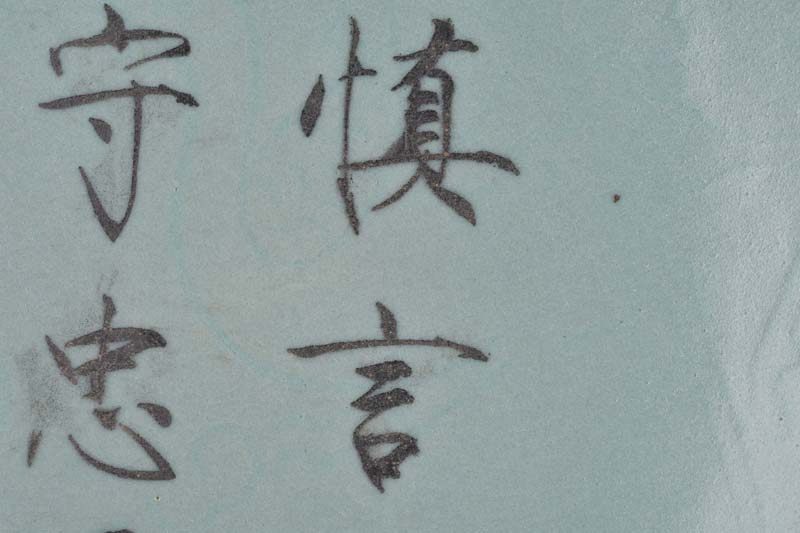 慎言
守忠